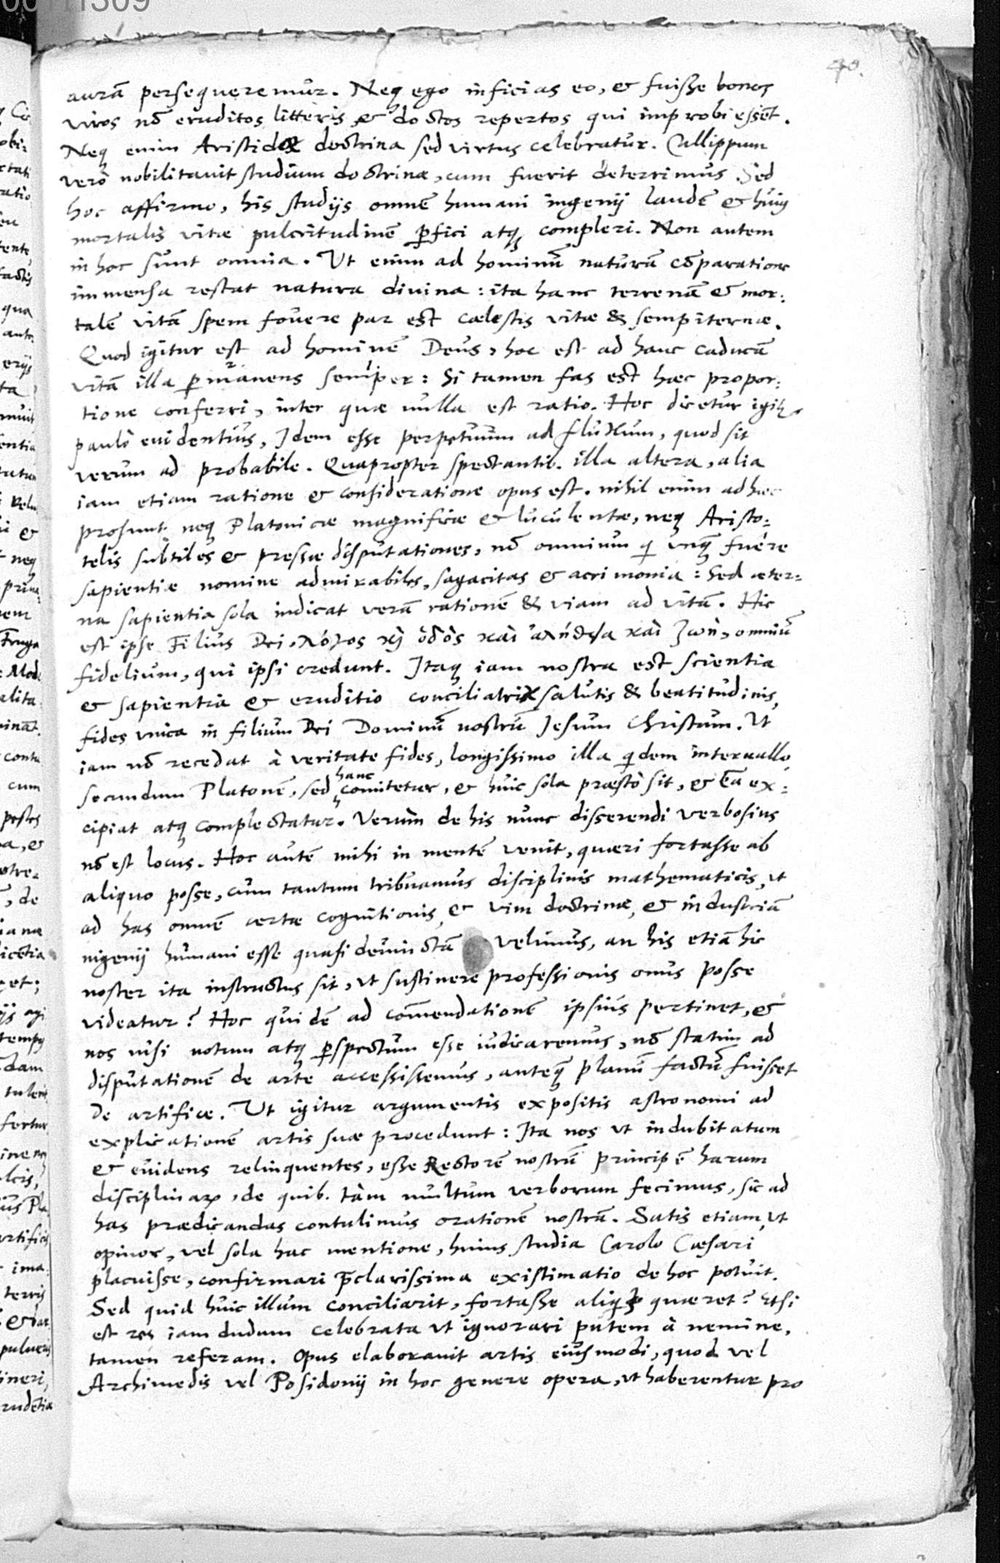 40.
aurā persequeremur. Neq ego inficias eo, & fuisse bonos
viros nō eruditos litteris & doctos repertos qui improbi essēt.
Neq enim Aristidæ doctrina sed virtus celebratur. Callippum
verò nobilitauit studium doctrinæ, cum fuerit deterrimus. Sed
hoc affirmo, his studijs omnē humani ingenij laudē & huiꝰ
mortalis vitæ pulcritudinē ꝑfici atq compleri. Non autem
in hoc sunt omnia. Ut enim ad hominū naturā cōparatione
immensa restat natura divina: ita hanc terrenā & mor:
talē vitā spem fouere par est cælestis vitæ & sempiternæ.
Quod igitur est ad hominē Deus, hoc est ad hanc caducā
vitā illa ꝑmanens semper: si tamen fas est hæc propor:
tione conferri, inter quæ nulla est ratio. Hoc dicetur igit
paulò euidentius, Idem esse perpetuum ad fluxum, quod sit
verum ad probabile. Quapropter spectantib. illa altera, alia
iam etiam ratione & consideratione opus est. nihil enim ad hæc
prosunt neq Platonicæ magnificæ & luculentæ, neq Aristo:
telis subtiles & pressæ disputationes, nō omnium q̄ vnq̄ fuêre
sapientiæ nomine admirabiles, sagacitas & acrimonia: Sed æter:
na sapientia sola indicat verā rationē & viam ad vitā. Hic
est ipse Filius Dei, λόγος κὶ ὁδὸς καὶ ἀλήθεια καὶ ζωὴ, omniū
fidelium, qui ipsi credunt. Itaq iam nostra est scientia
& sapientia & eruditio conciliatrix salutis & beatitudinis,
fides vnica in filium Dei Dominū nostrū Jesum Christum. Ut
iam nō recedat à veritate fides, longissimo illa q̄dem interuallo,
hanc
secundum Platonē, sed comitetur, & huic sola præstò sit, & Eā ex:
cipiat atq complectatur. Verùm de his nunc disserendi verbosius
nō est locus. Hoc autē mihi in mentē venit, quæri fortasse ab
aliquo posse, cum tantum tribuamus disciplinis mathematicis, vt
ad has omnē certæ cognitionis & vim doctrinæ, & industriā
ingenij humani esse quasi deuinctā velimus, an his etiā hic
noster ita instructus sit, vt sustinere professionis onus posse
videatur? Hoc quidē ad commendationē ipsius pertinet, &
nos nisi notum atq ꝑspectum esse iudicaremus, nō statim ad
disputationē de arte accessissemus, anteq̄ planū factū fuisset
de artifice. Ut igitur argumentis expositis astronomi ad
explicationē artis suæ procedunt: Ita nos vt indubitatum
& euidens relinquentes, esse Rectorē nostrū principē harum
disciplinarꝝ, de quib. tàm multum verborum fecimus, sic ad
has prædicandas contulimus orationē nostrā. Satis etiam, vt
opinor, vel sola hac mentione, huius studia Carolo Cæsari
placuisse, confirmari p̄clarissima existimatio de hoc potuit.
Sed quid huic illum conciliarit, fortasse aliq̄s quæret? Etsi
est res iam dudum celebrata vt ignorari putem à nemine,
tamen referam. Opus elaborauit artis eiusmodi, quod vel
Archimedis vel Posidonij in hoc genere opera, vt haberentur pro